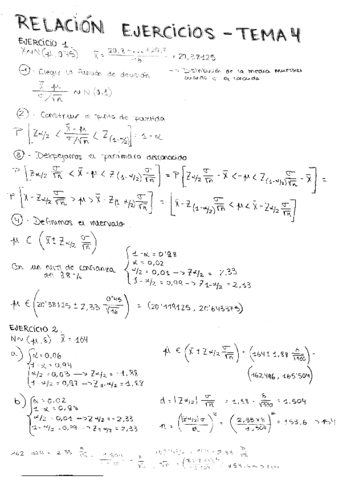 RELACIÓN EJERCICIOS - TEMA 4
EJERCICIO 1.
X~N(μ, 0'45) x̄ = 20,3 + ... + 20,3 / 16 = 20,38125
① - Elegir la función de decisión
x̄ - μ / σ/√n ~ N(0,1)
② - Construir el punto de partida
P [ Zα/2 < x̄ - μ / σ/√n < Z(1-α/2) ] = 1-α
③ - Despejamos el parámetro desconocido
P [ Zα/2 σ/√n < x̄ - μ < Z(1-α/2) σ/√n ] = P [ Zα/2 σ/√n - x̄ < -μ < Z(1-α/2) σ/√n - x̄ ] =
P [ x̄ - Zα/2 σ/√n > μ > x̄ - Z(1-α/2) σ/√n ] = [ x̄ - Z(1-α/2) σ/√n < μ < x̄ - Zα/2 σ/√n ]
④ - Definimos el intervalo
μ ∈ ( x̄ ± Zα/2 σ/√n )
Con un nivel de confianza del 98%
1-α = 0'98
α = 0,02
α/2 = 0,01 -> Zα/2 = 2,33
1-α/2 = 0,99 -> Z1-α/2 = 2,33
μ ∈ ( 20'38125 ± 2,33 0'45/√16 ) = ( 20'119125, 20'643375 )
EJERCICIO 2.
N~(μ, 8) x̄ = 164
a)
α = 0.06
1-α = 0.94
α/2 = 0.03 -> Zα/2 = -1.88
1-α/2 = 0,97 -> Z1-α/2 = 1,88
μ ∈ ( x̄ ± Zα/2 σ/√n ) = ( 164 ± 1,88 8/√100 ) =
( 162'496, 165'504 )
b)
α = 0.02
1-α = 0.98
α/2 = 0.01 -> Zα/2 = -2,33
1-α/2 = 0,99 -> Z1-α/2 = 2,33
d = |Zα/2| σ/√n = 1,88 · 8/√100 = 1.504